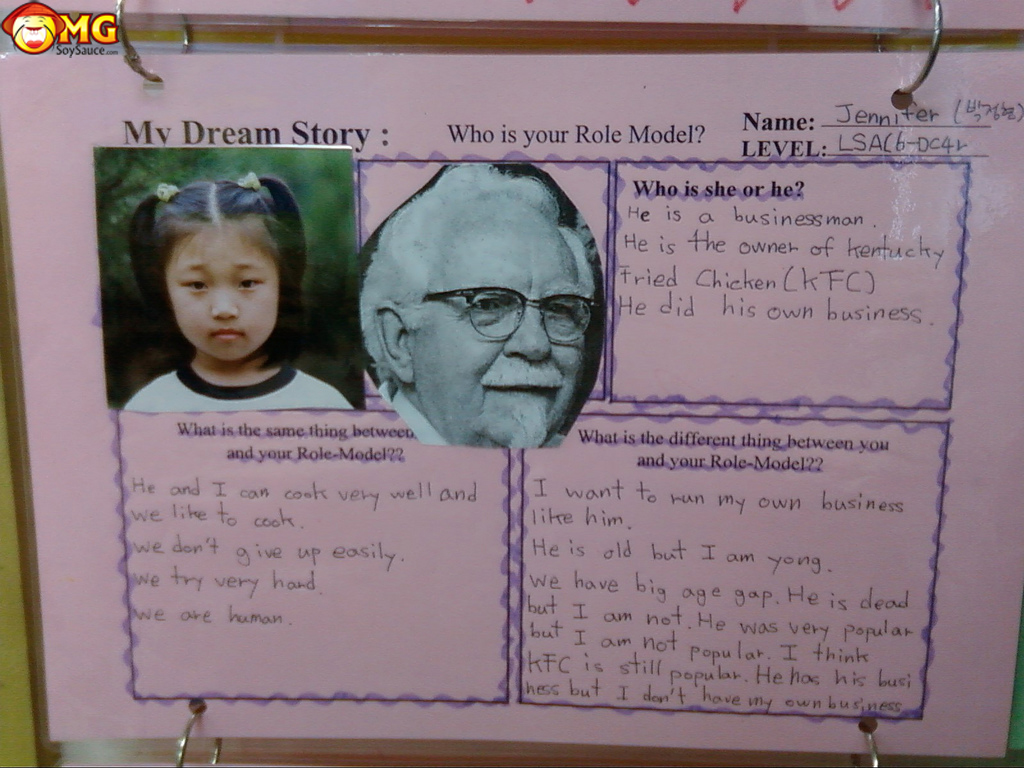 OMG
SoySauce.com
My Dream Story :
Who is your Role Model?
Name: Jennifer (박정
LEVEL: LSAC6-DC4r
Who is she or he?
He is a businessman.
He is the owner of kentucky
Fried Chicken(KFC)
He did his own business.
What is the same thing between
and your Role-Model??
He and I can cook very well and
we like to cook.
we don't give up easily.
we try very hard.
we are human.
What is the different thing between you
and your Role-Model??
I want to run my own business
like him.
He is old but I am yong.
we have big age gap. He is dead
but I am not. He was very popular
but I am not popular. I think
KFC is still popular. He has his busi
ness but I don't have my own business